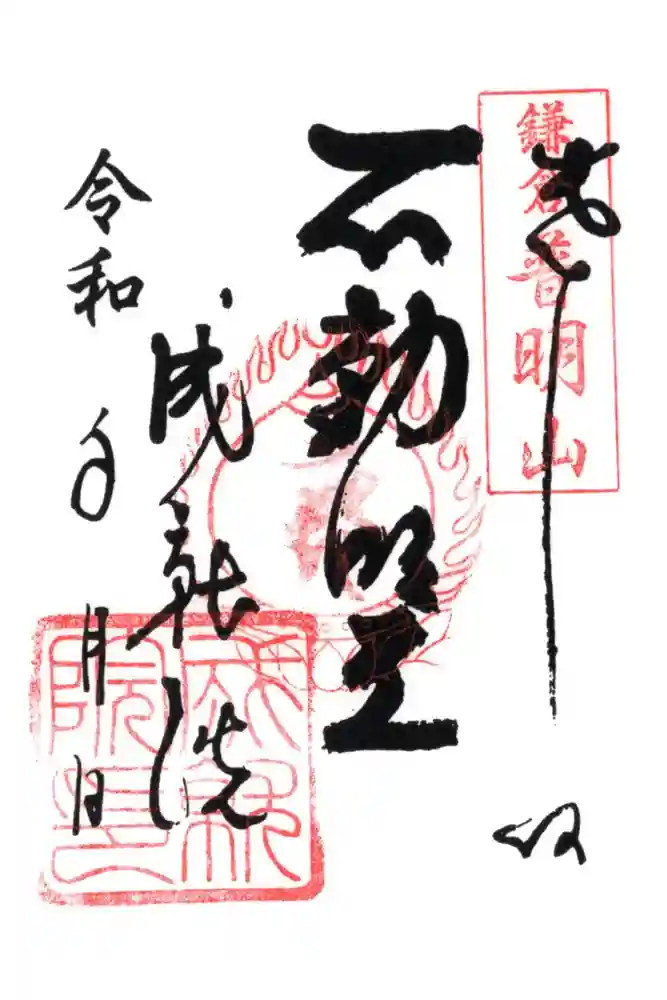 奉拝
鎌倉普明山
不動明王
成就院
令和 年 月 日
成就院印